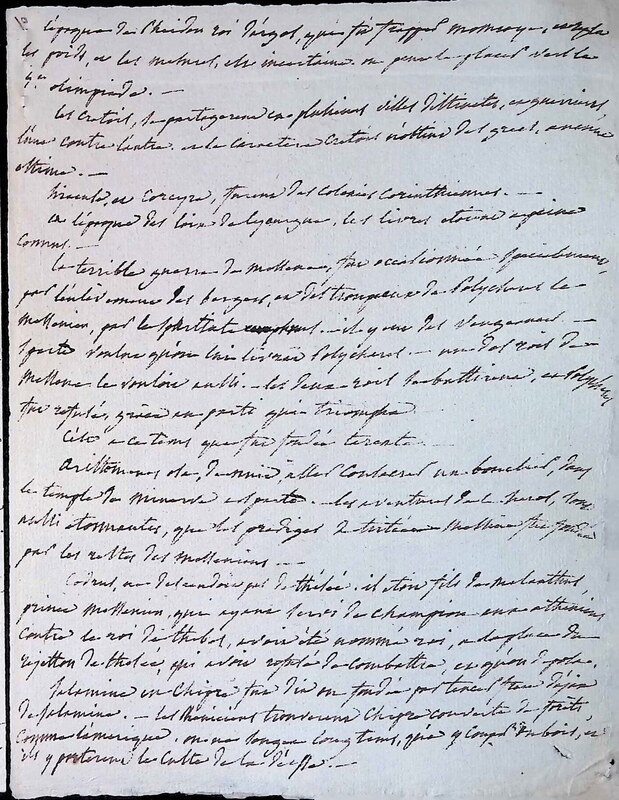 l'époque de Pheidon roi d'argos, qui fit frapper monnoye, et regla
les poids, et les mesures, est incertaine. on peut le placer vers la
4.e olimpiade. —
les cretois, se partagerent en plusieurs villes distinctes, et guerrieres,
l'une contre l'autre. et le caractere cretois n'obtint des grecs, aucune
estime. —
Siracuse, et Corcyre, furent des colonies corinthiennes. —
a l'époque des loix de lycurgue, les livres etoient a peine
connus. —
la terrible guerre de messene, fut occasionnée
par l'enlevement des bergers, et des troupeaux de Polychares le
messenien, par le spartiate — il y eut des vengeances —
Sparte voulut qu'on lui livrat Polychares. — un des rois de
messene le vouloit aussi. — les deux rois se battirent, et Polychares
fut refusé, grâce au parti qui triompha.
C'est a ce tems que fut fondée tarente.
Aristomenes osa, de nuit, aller consacrer un bouclier, dans
le temple de minerve a sparte. — les aventures de ce heros, sont
aussi étonnantes, que les prodiges de tirtée. Messine fut fondée
par les restes des messeniens —
Codrus, ne descendoit pas de thésée. il etoit fils de melanthus,
prince messenien, qui ayant servi de champion aux atheniens
contre le roi de thebes, avoit été nommé roi, a la place du
rejetton de thésée, qui avoit refusé de combattre, et qu'on deposa.
Salamine en Chipre fut dit on fondée par teucer frere d'ajax
de salamine. — les Phéniciens trouverent Chipre couverte de forêts,
comme l'amerique. on ne songea longtems, qu'a y couper du bois, et
ils y porterent le culte de la déesse. —